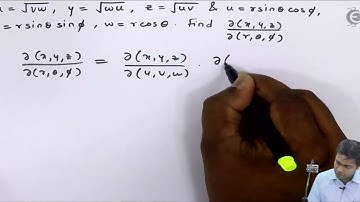 = √vw, y = √wu, z = √uv & u = rsinθ cosϕ,
= rsinθ sinϕ, w = rcosθ. Find ∂(x,y,z)/∂(r,θ,ϕ)
∂(x,y,z)/∂(r,θ,ϕ) = ∂(x,y,z)/∂(u,v,w) . ∂(